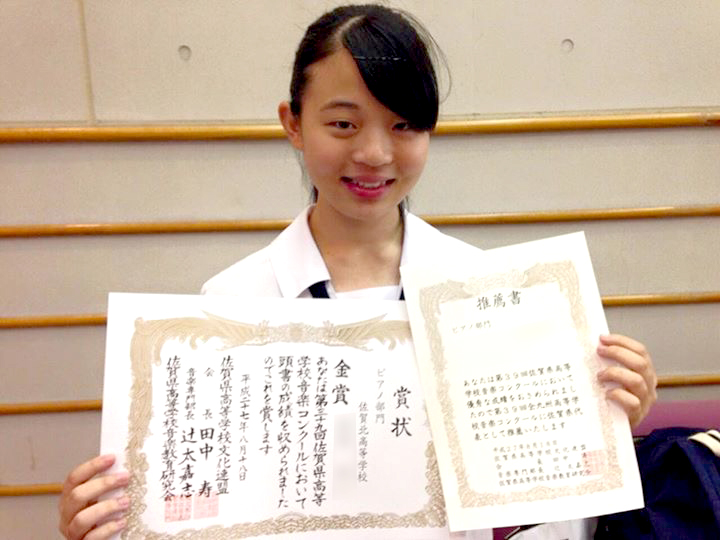 賞状
ピアノ部門
佐賀北高等学校
金賞
あなたは第三十九回佐賀県高等
学校音楽コンクールにおいて
頭書の成績を収められました
のでこれを賞します
平成二十七年八月十八日
佐賀県高等学校文化連盟
会長 田中 寿
音楽専門部長 辻 太嘉志
佐賀県高等学校音楽教育研究会
推薦書
ピアノ部門
あなたは第39回佐賀県高等
学校音楽コンクールにおいて
優秀な成績をおさめられまし
たので第39回全九州高等学
校音楽コンクールに佐賀県代
表として推薦いたします
平成27年8月18日
佐賀県高等学校文化連盟